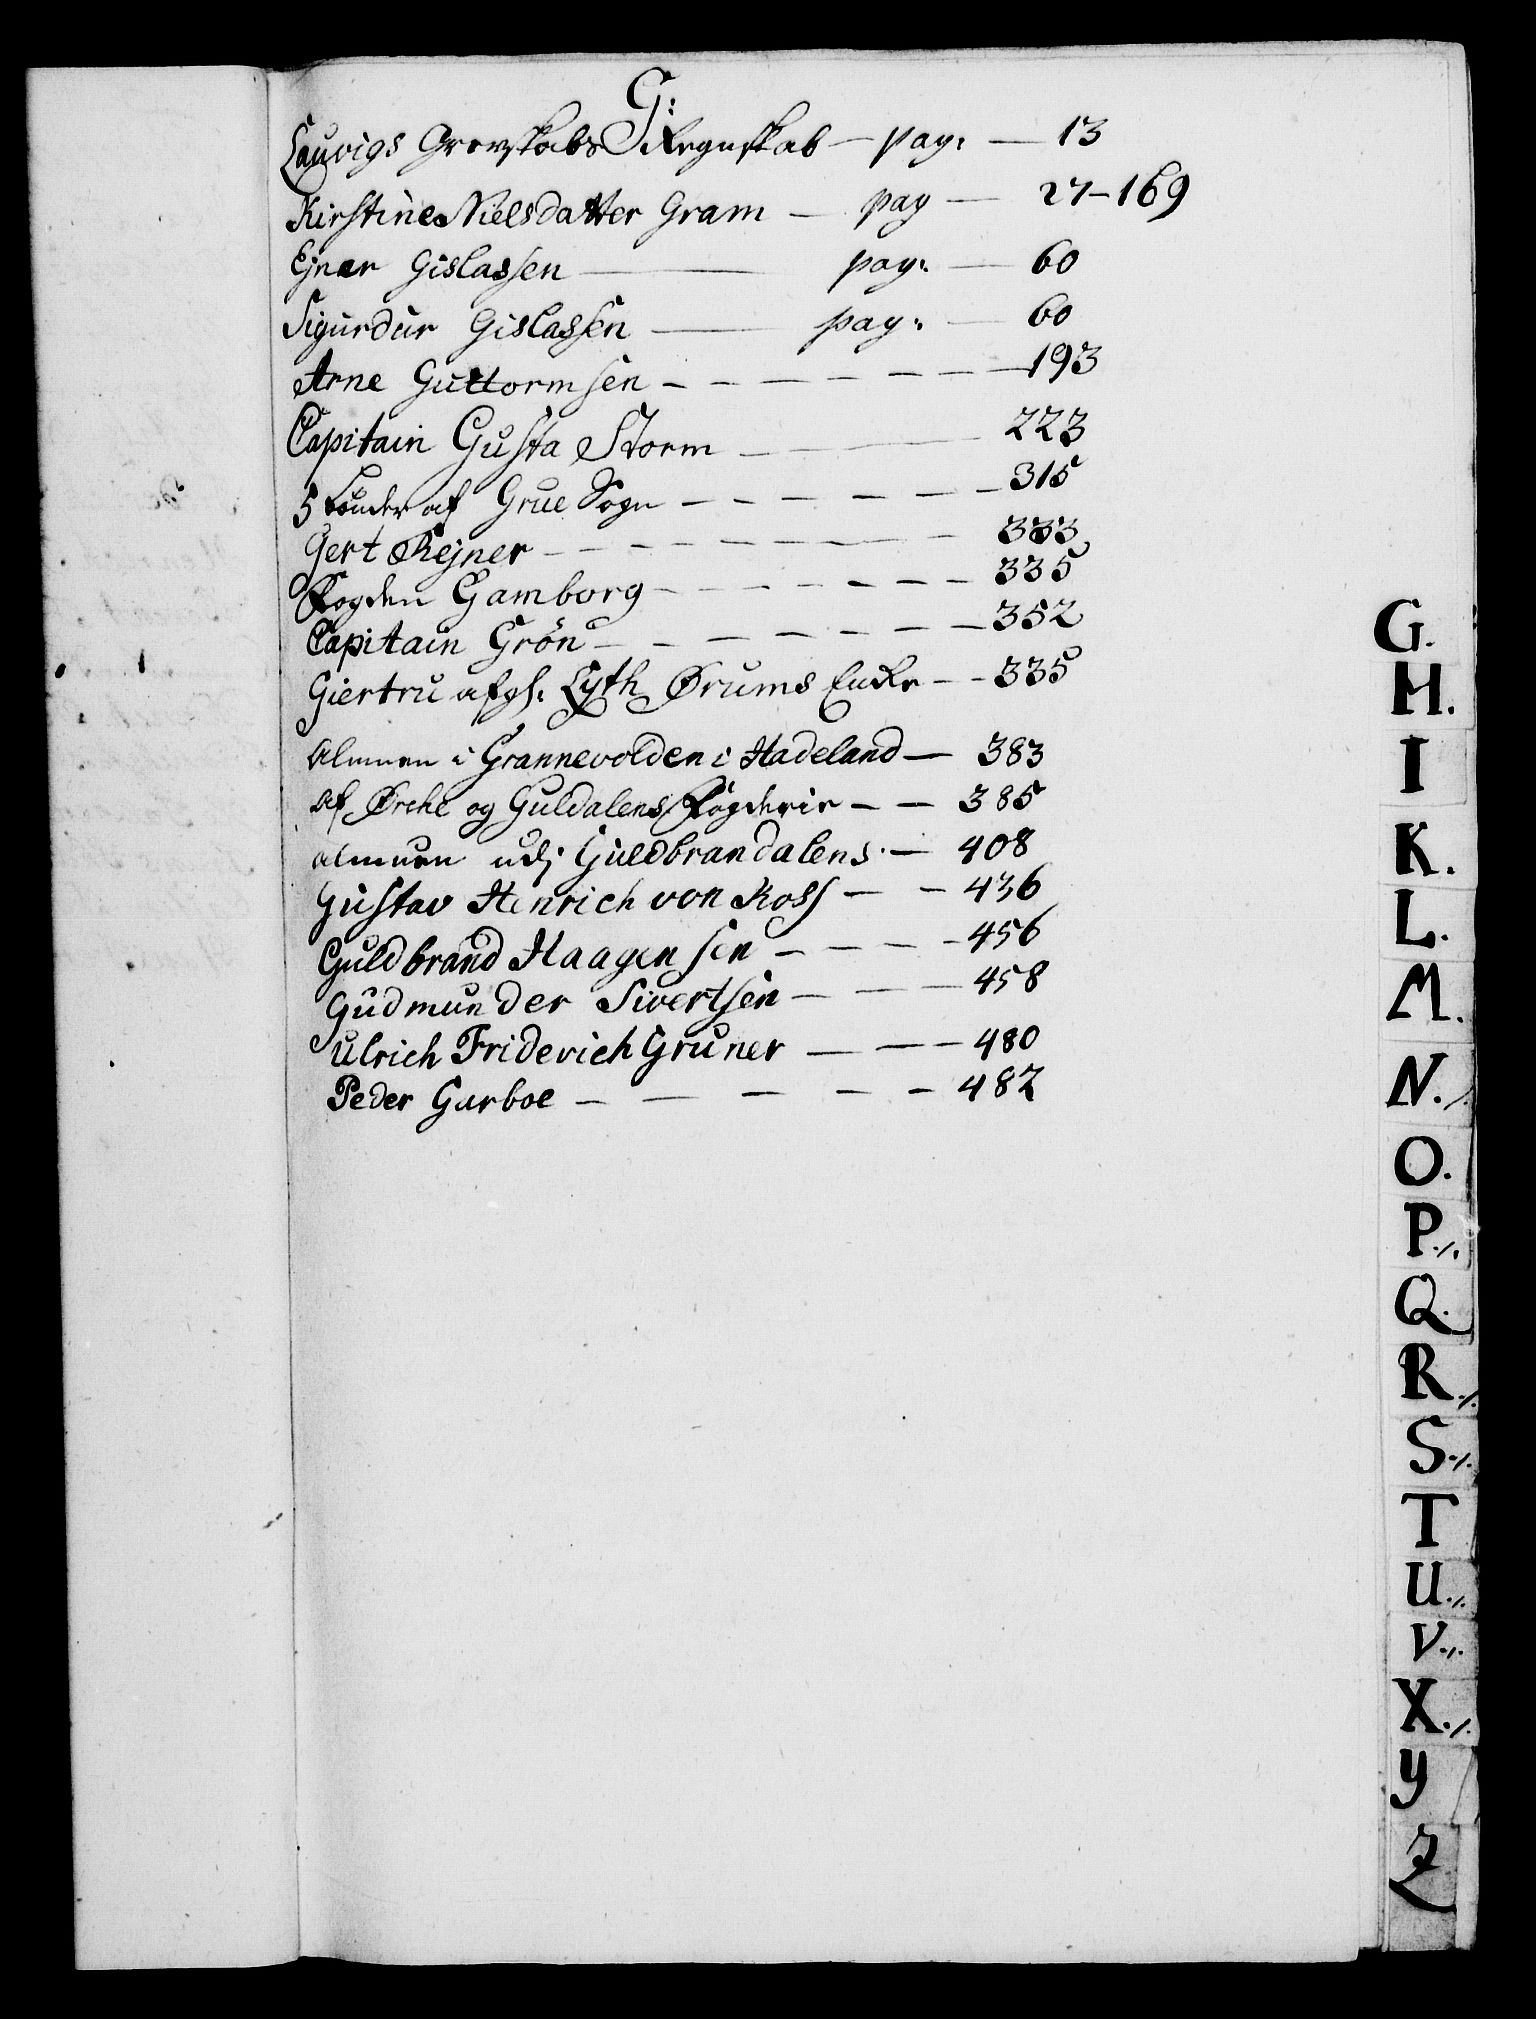 G:
Lauvigs Grevskabs Regnskab — pag: — 13
Kirstine Nielsdatter Gram — pag — 27–169
Ejner Gislassen — pag: — 60
Sigurdur Gislassen — pag: — 60
Arne Guttormsen — 193
Capitain Gusta Storm — 223
5 Bønder af Grue Sogn — 315
Gert Rejner — 333
Fogden Gamborg — 335
Capitain Grön — 352
Giertru afg: Lyth Ørums Enke — 335
Almuen i Grannevolden i Hadeland — 383
Af Örche og Guldalens Fogderie — 385
almuen udj Guldbrandalens — 408
Gustav Henrich von Koss — 436
Guldbrand Haagensen — 456
Gudmunder Sivertsen — 458
Ulrich Friderich Gruner — 480
Peder Garboe — 482
G.
H.
I
K.
L.
M.
N. ⁒
O.
P. ⁒
Q.
R. ⁒
S. ⁒
T
U. ⁒
V. ⁒
X. ⁒
Y
Z